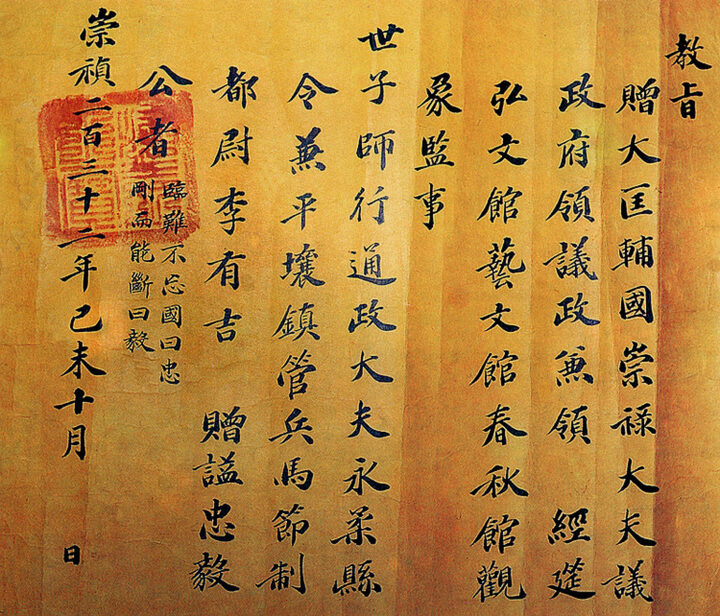 教旨
贈大匡輔國崇祿大夫議
政府領議政兼領 經筵
弘文館藝文館春秋館觀
象監事
世子師行通政大夫永柔縣
令兼平壤鎮管兵馬節制
都尉李有吉 贈謚忠毅
公者
臨難不忘國曰忠
剛而能斷曰毅
崇禎二百三十二年己未十月 日